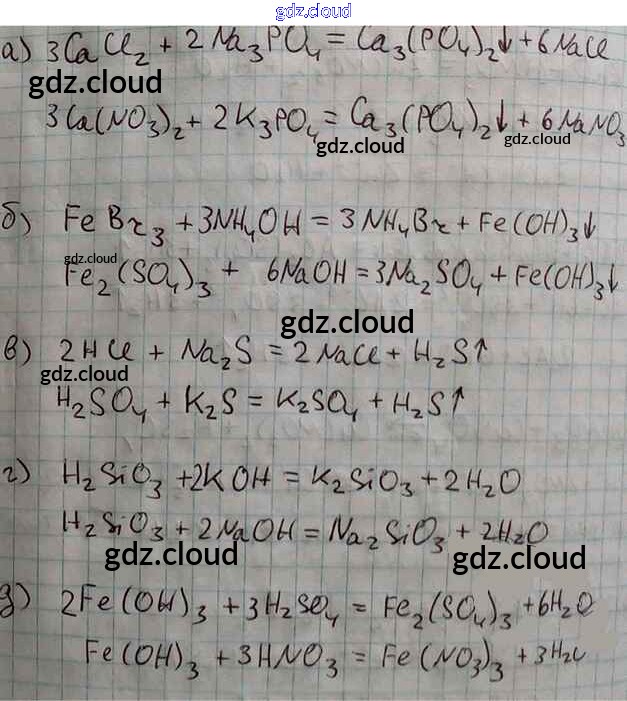 gdz.cloud
а) 3CaCl₂ + 2Na₃PO₄ = Ca₃(PO₄)₂↓ + 6NaCl
gdz.cloud
3Ca(NO₃)₂ + 2K₃PO₄ = Ca₃(PO₄)₂↓ + 6NaNO₃
gdz.cloud gdz.cloud
б) FeBr₃ + 3NH₄OH = 3NH₄Br + Fe(OH)₃↓
gdz.cloud
Fe₂(SO₄)₃ + 6NaOH = 3Na₂SO₄ + Fe(OH)₃↓
gdz.cloud
в) 2HCl + Na₂S = 2NaCl + H₂S↑
gdz.cloud
H₂SO₄ + K₂S = K₂SO₄ + H₂S↑
г) H₂SiO₃ + 2KOH = K₂SiO₃ + 2H₂O
H₂SiO₃ + 2NaOH = Na₂SiO₃ + 2H₂O
gdz.cloud gdz.cloud
д) 2Fe(OH)₃ + 3H₂SO₄ = Fe₂(SO₄)₃ + 6H₂O
Fe(OH)₃ + 3HNO₃ = Fe(NO₃)₃ + 3H₂O